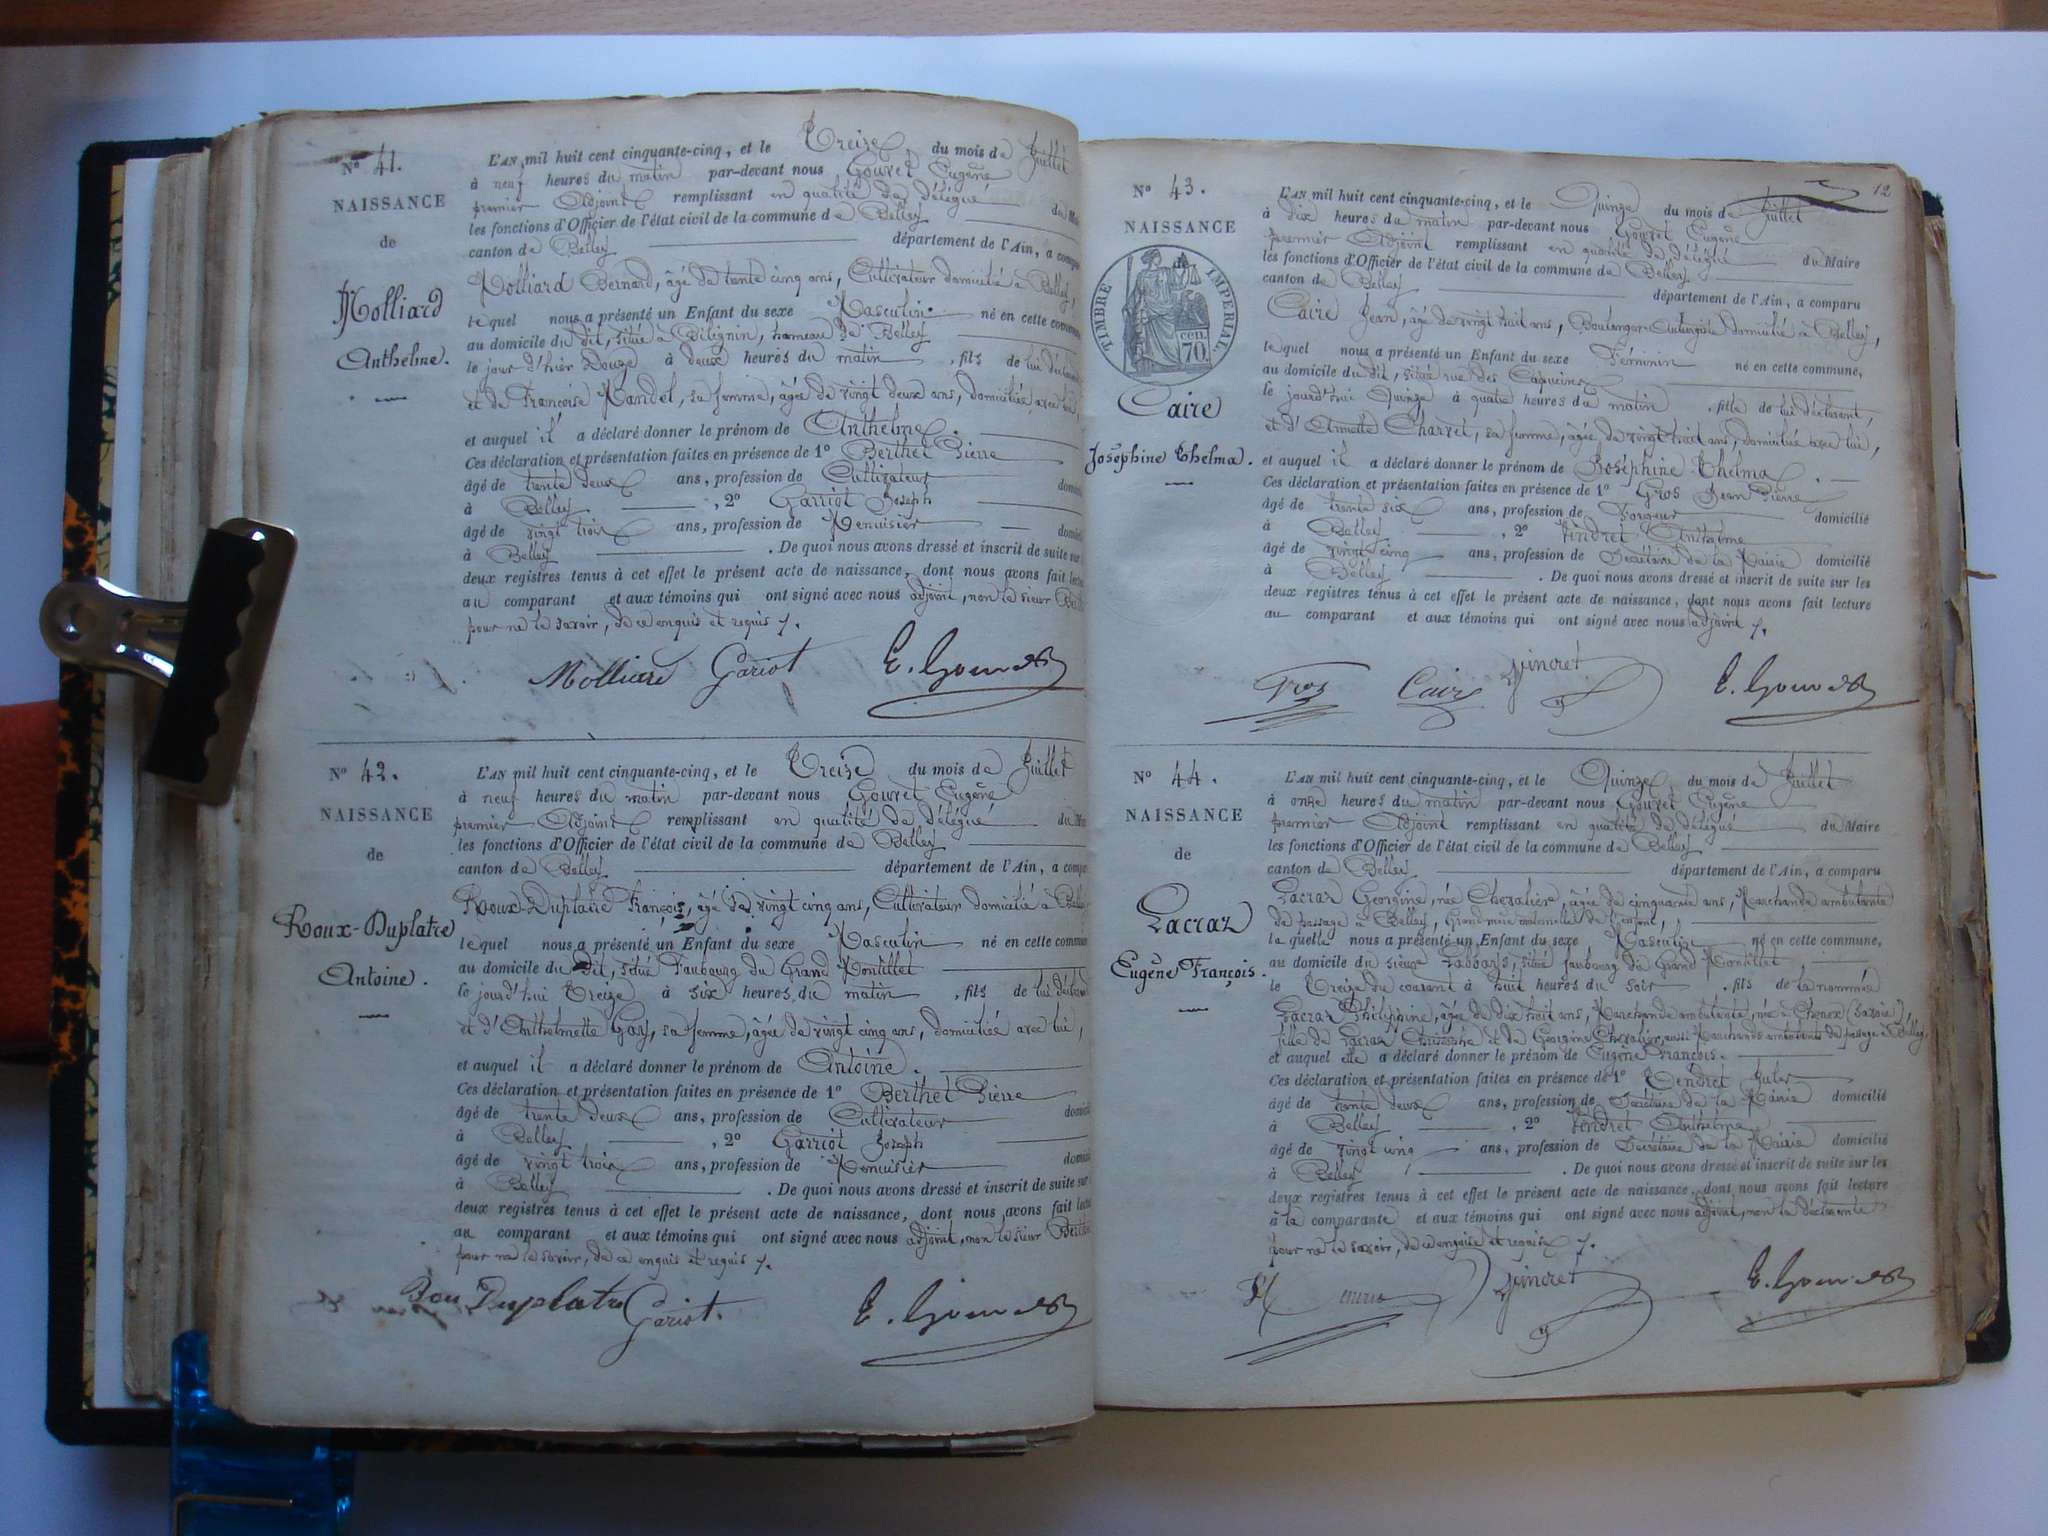 N° 41.
NAISSANCE
de
Molliard
Anthelme.
L'AN mil huit cent cinquante-cinq, et le Treize du mois de Juillet
à neuf heures du matin par-devant nous Gouvet Eugène
premier Adjoint remplissant en qualité de délégué du
les fonctions d'Officier de l'état civil de la commune de Belley
canton de Belley département de l'Ain, a
Molliard Bernard, âgé de trente cinq ans, Cultivateur domicilié à Belley,
lequel nous a présenté un Enfant du sexe Masculin né en cette
au domicile du dit, situé à Billignin, hameau de Belley
le jour d'hier Douze à deux heures du matin, fils de lui
et de Françoise Mandel, sa femme, âgée de vingt deux ans, domiciliée avec lui,
et auquel il a déclaré donner le prénom de Anthelme.
Ces déclaration et présentation faites en présence de 1° Berthet Pierre
âgé de trente deux ans, profession de Cultivateur
à Belley, 2° Garriot Joseph
âgé de vingt trois ans, profession de Menuisier
à Belley. De quoi nous avons dressé et inscrit de suite sur
deux registres tenus à cet effet le présent acte de naissance, dont nous avons fait
au comparant et aux témoins qui ont signé avec nous adjoint, non le sieur
pour ne le savoir, de ce enquis et requis
Molliard Gariot E. Gouvet
N° 42.
NAISSANCE
de
Roux-Duplatre
Antoine.
L'AN mil huit cent cinquante-cinq, et le Treize du mois de Juillet
à neuf heures du matin par-devant nous Gouvet Eugène
premier Adjoint remplissant en qualité de délégué du
les fonctions d'Officier de l'état civil de la commune de Belley
canton de Belley département de l'Ain, a
Roux-Duplatre François, âgé de vingt cinq ans, Cultivateur domicilié à
lequel nous a présenté un Enfant du sexe Masculin né en cette
au domicile du dit, situé Faubourg du Grand Montillet
le jourd'hui Treize à six heures du matin, fils de lui
et d'Anthelmette Gay, sa femme, âgée de vingt cinq ans, domiciliée avec lui,
et auquel il a déclaré donner le prénom de Antoine.
Ces déclaration et présentation faites en présence de 1° Berthet Pierre
âgé de trente deux ans, profession de Cultivateur
à Belley, 2° Garriot Joseph
âgé de vingt trois ans, profession de Menuisier
à Belley. De quoi nous avons dressé et inscrit de suite sur
deux registres tenus à cet effet le présent acte de naissance, dont nous avons fait
au comparant et aux témoins qui ont signé avec nous adjoint, non le sieur
pour ne le savoir, de ce enquis et requis
Duplatre Gariot. E. Gouvet
12
N° 43.
NAISSANCE
de
TIMBRE IMPERIAL.
70. cen
Caire
Joséphine Thelma.
L'AN mil huit cent cinquante-cinq, et le Quinze du mois de Juillet
à dix heures du matin par-devant nous Gouvet Eugène
premier Adjoint remplissant en qualité de délégué du Maire
les fonctions d'Officier de l'état civil de la commune de Belley
canton de Belley département de l'Ain, a comparu
Caire Jean, âgé de vingt huit ans, Boulanger-Aubergiste domicilié à Belley,
lequel nous a présenté un Enfant du sexe Féminin né en cette commune,
au domicile du dit, situé rue des Capucins
le jourd'hui Quinze à quatre heures du matin, fille de lui déclarant,
et d'Annette Charvet, sa femme, âgée de vingt huit ans, domiciliée avec lui,
et auquel il a déclaré donner le prénom de Joséphine Thelma.
Ces déclaration et présentation faites en présence de 1° Gros Jean Pierre
âgé de trente six ans, profession de domicilié
à Belley, 2° Tendret Anthelme
âgé de vingt cinq ans, profession de Secrétaire de la Mairie domicilié
à Belley. De quoi nous avons dressé et inscrit de suite sur les
deux registres tenus à cet effet le présent acte de naissance, dont nous avons fait lecture
au comparant et aux témoins qui ont signé avec nous adjoint
Gros Caire E. Gouvet
N° 44.
NAISSANCE
de
Lacraz
Eugène François.
L'AN mil huit cent cinquante-cinq, et le Quinze du mois de Juillet
à onze heures du matin par-devant nous Gouvet Eugène
premier Adjoint remplissant en qualité de délégué du Maire
les fonctions d'Officier de l'état civil de la commune de Belley
canton de Belley département de l'Ain, a comparu
Lacraz Georgine, née Chevalier, âgée de cinquante ans, Marchande ambulante
de passage à Belley, Grand'mère maternelle de l'enfant,
la quelle nous a présenté un Enfant du sexe Masculin né en cette commune,
au domicile du sieur situé faubourg du Grand Montillet
le Treize du courant à huit heures du soir, fils de la nommée
Lacraz Philippine, âgée de dix huit ans, Marchande ambulante, née à (Savoie),
fille de Lacraz et de Georgine Chevalier, aussi Marchands ambulants de passage à Belley,
et auquel elle a déclaré donner le prénom de Eugène François.
Ces déclaration et présentation faites en présence de 1° Tendret Jules
âgé de trente deux ans, profession de Secrétaire de la Mairie domicilié
à Belley, 2° Tendret Anthelme
âgé de vingt cinq ans, profession de Secrétaire de la Mairie domicilié
à Belley. De quoi nous avons dressé et inscrit de suite sur les
deux registres tenus à cet effet le présent acte de naissance, dont nous avons fait lecture
à la comparante et aux témoins qui ont signé avec nous adjoint, non la déclarante
pour ne le savoir, de ce enquise et requise
E. Gouvet